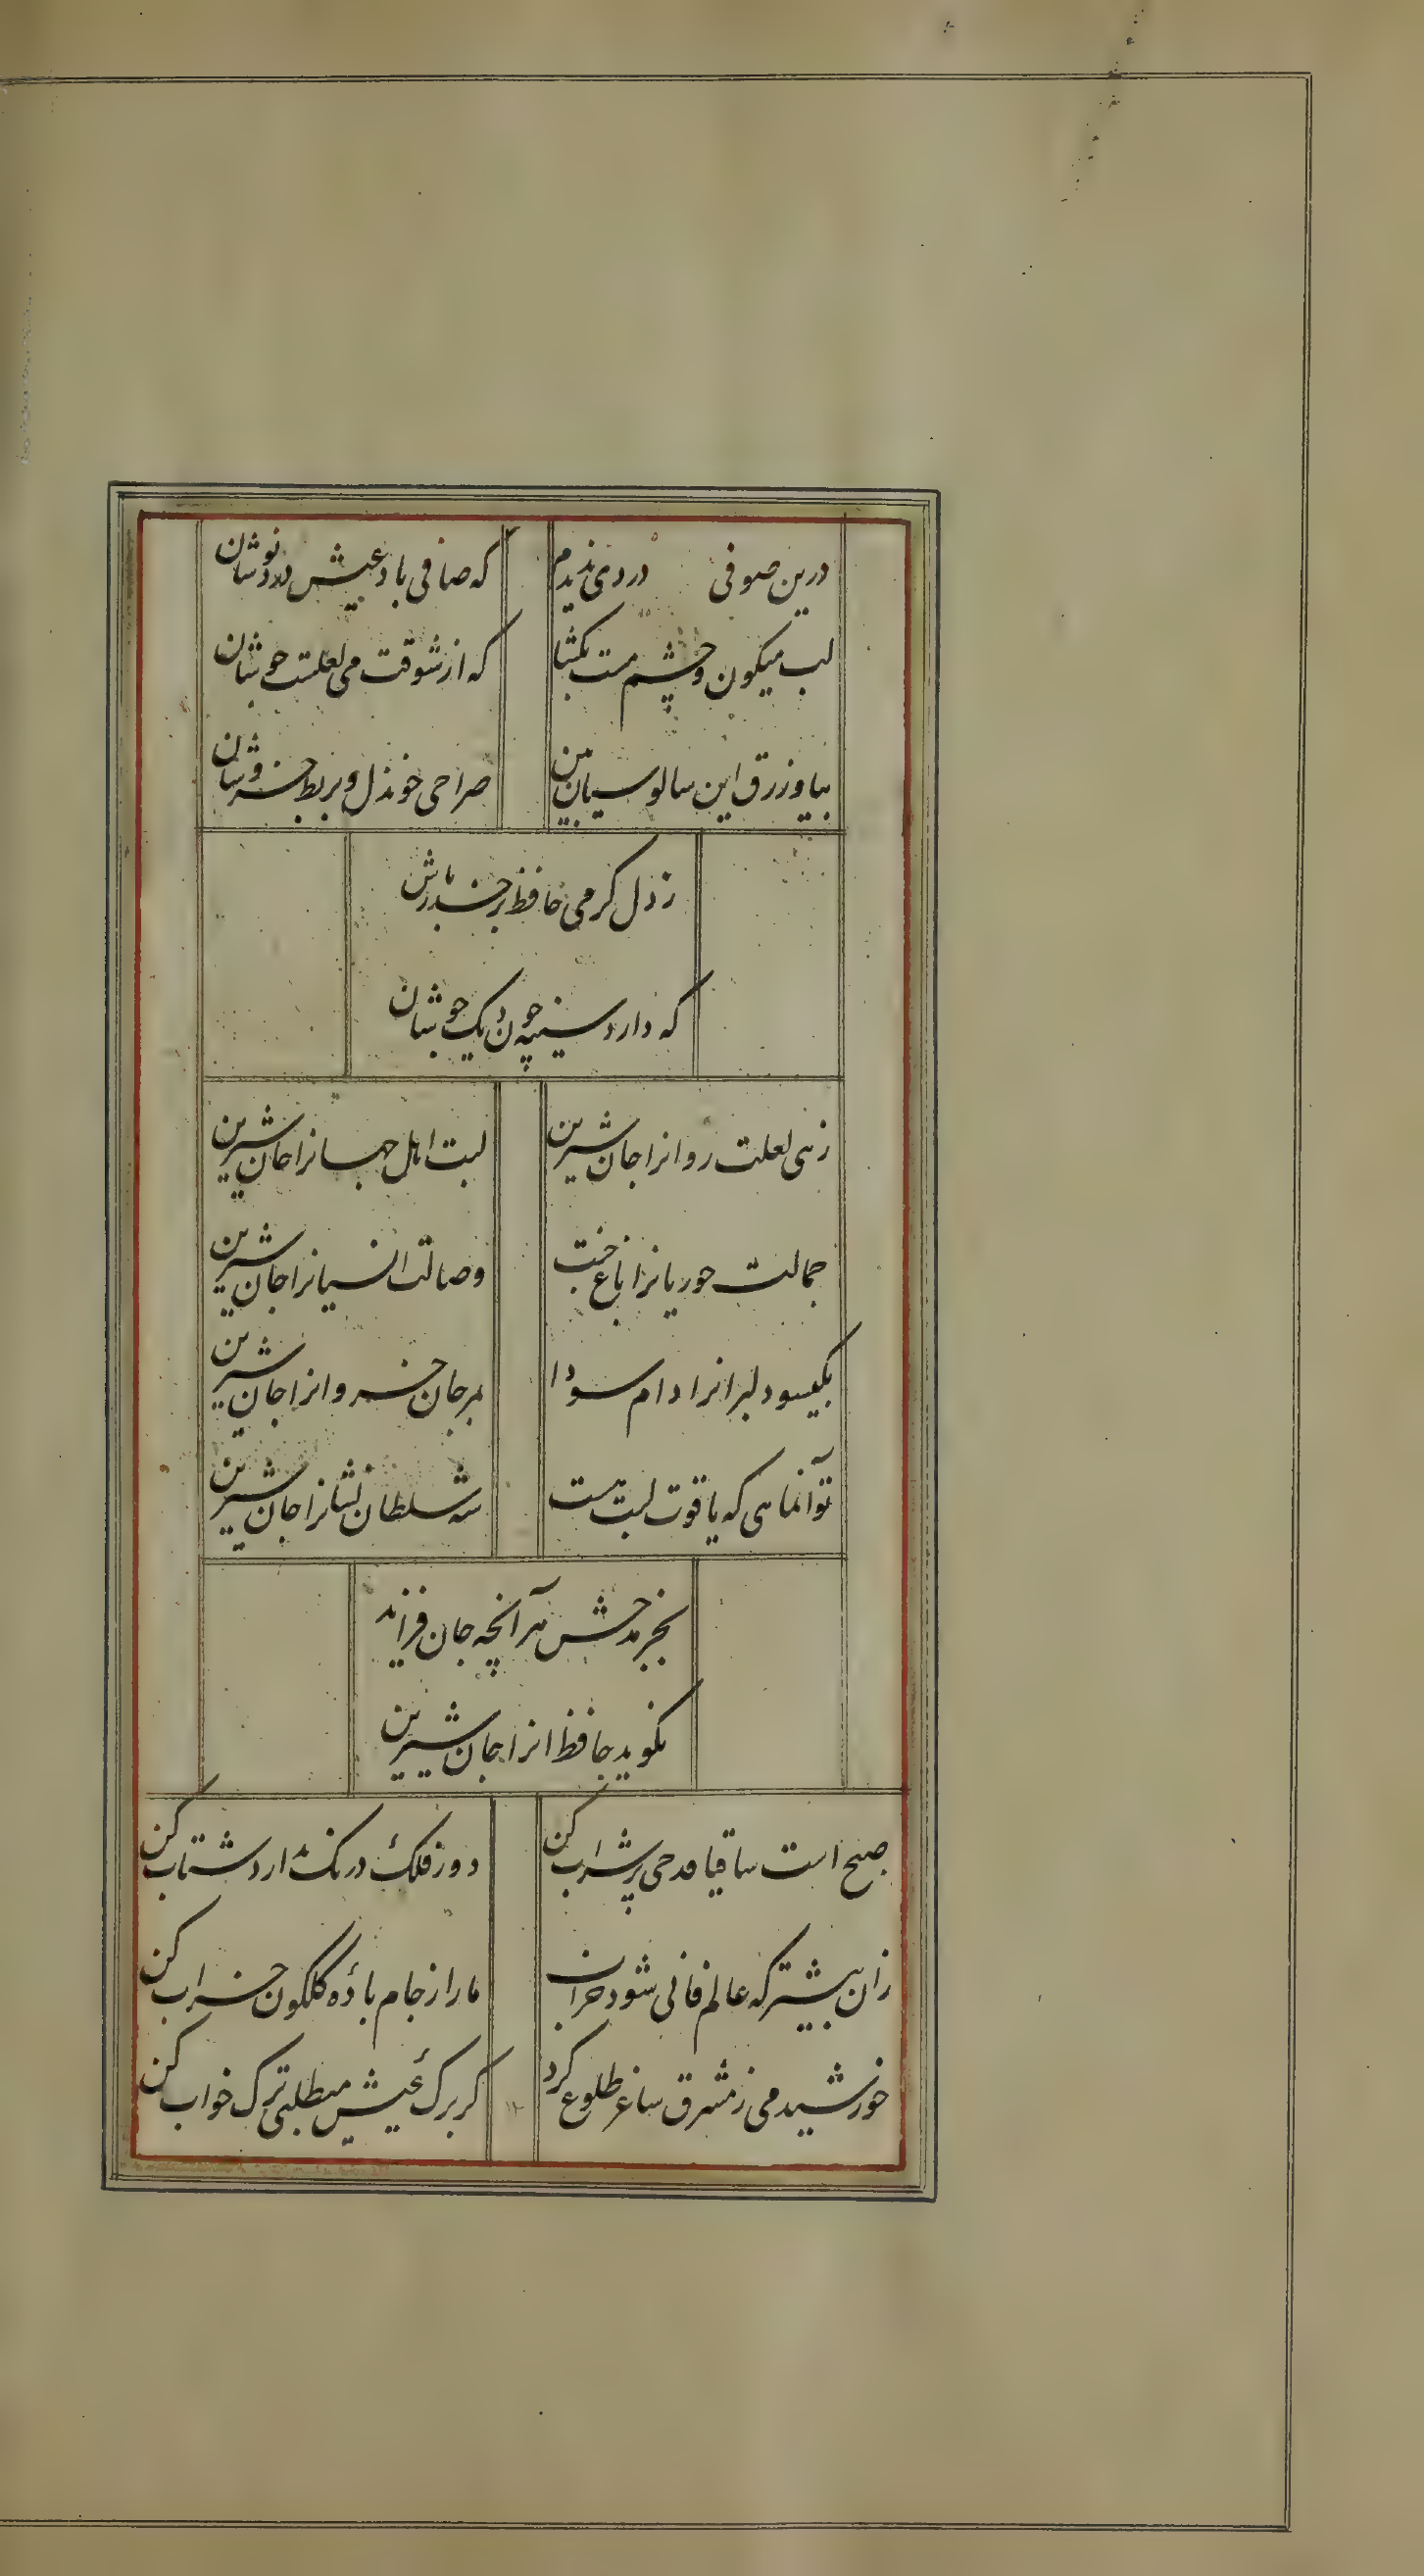 درین صوفی دردی ندیدم که صافی باد عیش دردنوشان
لب میکون و چشم مست بکشا که از شوقت می لعلست جوشان
بیا و زرق این سالوسیان بین صراحی خوندل و بربط خروشان
ز دل کرمی حافظ بر حذر باش
که دارد سینه چون دیک جوشان
زهی لعلت روانرا جان شیرین لبت اهل جهانرا جان شیرین
جمالت حوریانرا باغ جنت وصالت انسیانرا جان شیرین
بکیسو دلبرانرا دام سودا بمرجان خسروانرا جان شیرین
تو آنماهی که یاقوت لبت هست شه سلطان نشانرا جان شیرین
بجز مدحش هر آنچه جان فزاید
نکوید حافظ انرا جان شیرین
صبح است ساقیا قدحی پر شراب کن دور فلک درنک ندارد شتاب کن
زان پیشتر که عالم فانی شود خراب ما را ز جام بادهٔ کلکون خراب کن
خورشید می ز مشرق ساغر طلوع کرد کر برک عیش میطلبی ترک خواب کن